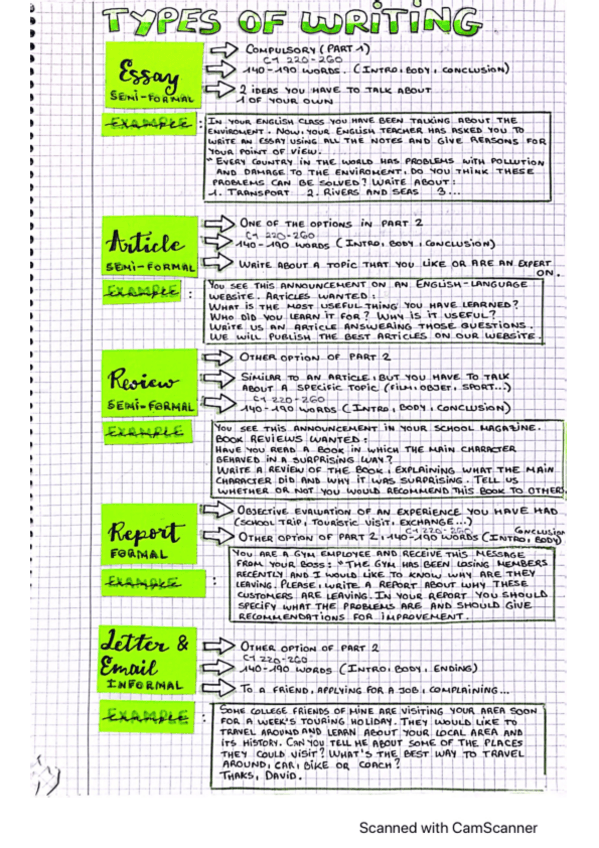 TYPES OF WRITING
Essay
SEMI-FORMAL
COMPULSORY (PART 1)
C1 220-260
140-190 WORDS. (INTRO, BODY, CONCLUSION)
2 IDEAS YOU HAVE TO TALK ABOUT
1 OF YOUR OWN
EXAMPLE :
IN YOUR ENGLISH CLASS YOU HAVE BEEN TALKING ABOUT THE
ENVIROMENT. NOW, YOUR ENGLISH TEACHER HAS ASKED YOU TO
WRITE AN ESSAY USING ALL THE NOTES AND GIVE REASONS FOR
YOUR POINT OF VIEW.
"EVERY COUNTRY IN THE WORLD HAS PROBLEMS WITH POLLUTION
AND DAMAGE TO THE ENVIROMENT, DO YOU THINK THESE
PROBLEMS CAN BE SOLVED? WRITE ABOUT:
1. TRANSPORT 2. RIVERS AND SEAS 3...
Article
SEMI-FORMAL
ONE OF THE OPTIONS IN PART 2
C1 220-260
140-190 WORDS (INTRO, BODY, CONCLUSION)
WRITE ABOUT A TOPIC THAT YOU LIKE OR ARE AN EXPERT
ON.
EXAMPLE :
YOU SEE THIS ANNOUNCEMENT ON AN ENGLISH-LANGUAGE
WEBSITE. ARTICLES WANTED:
WHAT IS THE MOST USEFUL THING YOU HAVE LEARNED?
WHO DID YOU LEARN IT FOR? WHY IS IT USEFUL?
WRITE US AN ARTICLE ANSWERING THOSE QUESTIONS.
WE WILL PUBLISH THE BEST ARTICLES ON OUR WEBSITE.
Review
SEMI-FORMAL
OTHER OPTION OF PART 2
SIMILAR TO AN ARTICLE, BUT YOU HAVE TO TALK
ABOUT A SPECIFIC TOPIC (FILM, OBJET, SPORT...)
C1 220-260
140-190 WORDS (INTRO, BODY, CONCLUSION)
EXAMPLE
YOU SEE THIS ANNOUNCEMENT IN YOUR SCHOOL MAGAZINE.
BOOK REVIEWS WANTED:
HAVE YOU READ A BOOK IN WHICH THE MAIN CHARACTER
BEHAVED IN A SURPRISING WAY?
WRITE A REVIEW OF THE BOOK, EXPLAINING WHAT THE MAIN
CHARACTER DID AND WHY IT WAS SURPRISING. TELL US
WHETHER OR NOT YOU WOULD RECOMMEND THIS BOOK TO OTHER
Report
FORMAL
OBJECTIVE EVALUATION OF AN EXPERIENCE YOU HAVE HAD
(SCHOOL TRIP, TOURISTIC VISIT, EXCHANGE...)
C1 220-260 CONCLUSION
OTHER OPTION OF PART 2, 140-190 WORDS (INTRO, BODY)
EXAMPLE :
YOU ARE A GYM EMPLOYEE AND RECEIVE THIS MESSAGE
FROM YOUR BOSS: "THE GYM HAS BEEN LOSING MEMBERS
RECENTLY AND I WOULD LIKE TO KNOW WHY ARE THEY
LEAVING. PLEASE, WRITE A REPORT ABOUT WHY THESE
CUSTOMERS ARE LEAVING. IN YOUR REPORT YOU SHOULD
SPECIFY WHAT THE PROBLEMS ARE AND SHOULD GIVE
RECOMMENDATIONS FOR IMPROVEMENT.
Letter &
Email
INFORMAL
OTHER OPTION OF PART 2
C1 220-260
140-190 WORDS (INTRO, BODY, ENDING)
TO A FRIEND, APPLYING FOR A JOB, COMPLAINING...
EXAMPLE :
SOME COLLEGE FRIENDS OF MINE ARE VISITING YOUR AREA SOON
FOR A WEEK'S TOURING HOLIDAY. THEY WOULD LIKE TO
TRAVEL AROUND AND LEARN ABOUT YOUR LOCAL AREA AND
ITS HISTORY. CAN YOU TELL ME ABOUT SOME OF THE PLACES
THEY COULD VISIT? WHAT'S THE BEST WAY TO TRAVEL
AROUND, CAR, BIKE OR COACH?
THAKS, DAVID.
Scanned with CamScanner